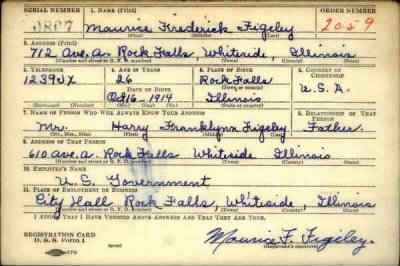 SERIAL NUMBER 1. NAME (Print) ORDER NUMBER
Maurice Frederick Figeley 2059
(First) (Middle) (Last)
2. ADDRESS (Print)
712 Ave. A. Rock Falls, Whiteside, Illinois
(Number and street or R. F. D. number) (Town) (County) (State)
3. TELEPHONE 4. AGE IN YEARS 5. PLACE OF BIRTH 6. COUNTRY OF CITIZENSHIP
26 Rock Falls
DATE OF BIRTH (Town or county) U.S.A.
1914 Illinois
(Exchange) (Number) (Mo.) (Day) (Yr.) (State or country)
7. NAME OF PERSON WHO WILL ALWAYS KNOW YOUR ADDRESS 8. RELATIONSHIP OF THAT PERSON
Mr. Harry Franklynn Figeley Father
(Mr., Mrs., Miss) (First) (Middle) (Last)
9. ADDRESS OF THAT PERSON
610 Ave. A. Rock Falls Whiteside Illinois
(Number and street or R. F. D. number) (Town) (County) (State)
10. EMPLOYER'S NAME
U.S. Government
11. PLACE OF EMPLOYMENT OR BUSINESS
City Hall Rock Falls, Whiteside, Illinois
(Number and street or R. F. D. number) (Town) (County) (State)
I AFFIRM THAT I HAVE VERIFIED ABOVE ANSWERS AND THAT THEY ARE TRUE.
REGISTRATION CARD
D. S. S. Form 1 Maurice F. Figeley.
(Registrant's signature)